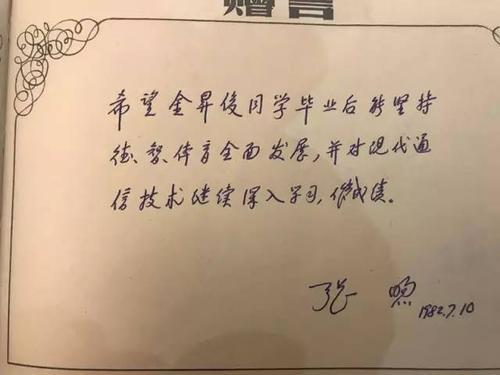 赠言
希望金昇俊同学毕业后能坚持
德、智、体育全面发展,并对现代通
信技术继续深入学习,作成绩。
张 煦
1982.7.10